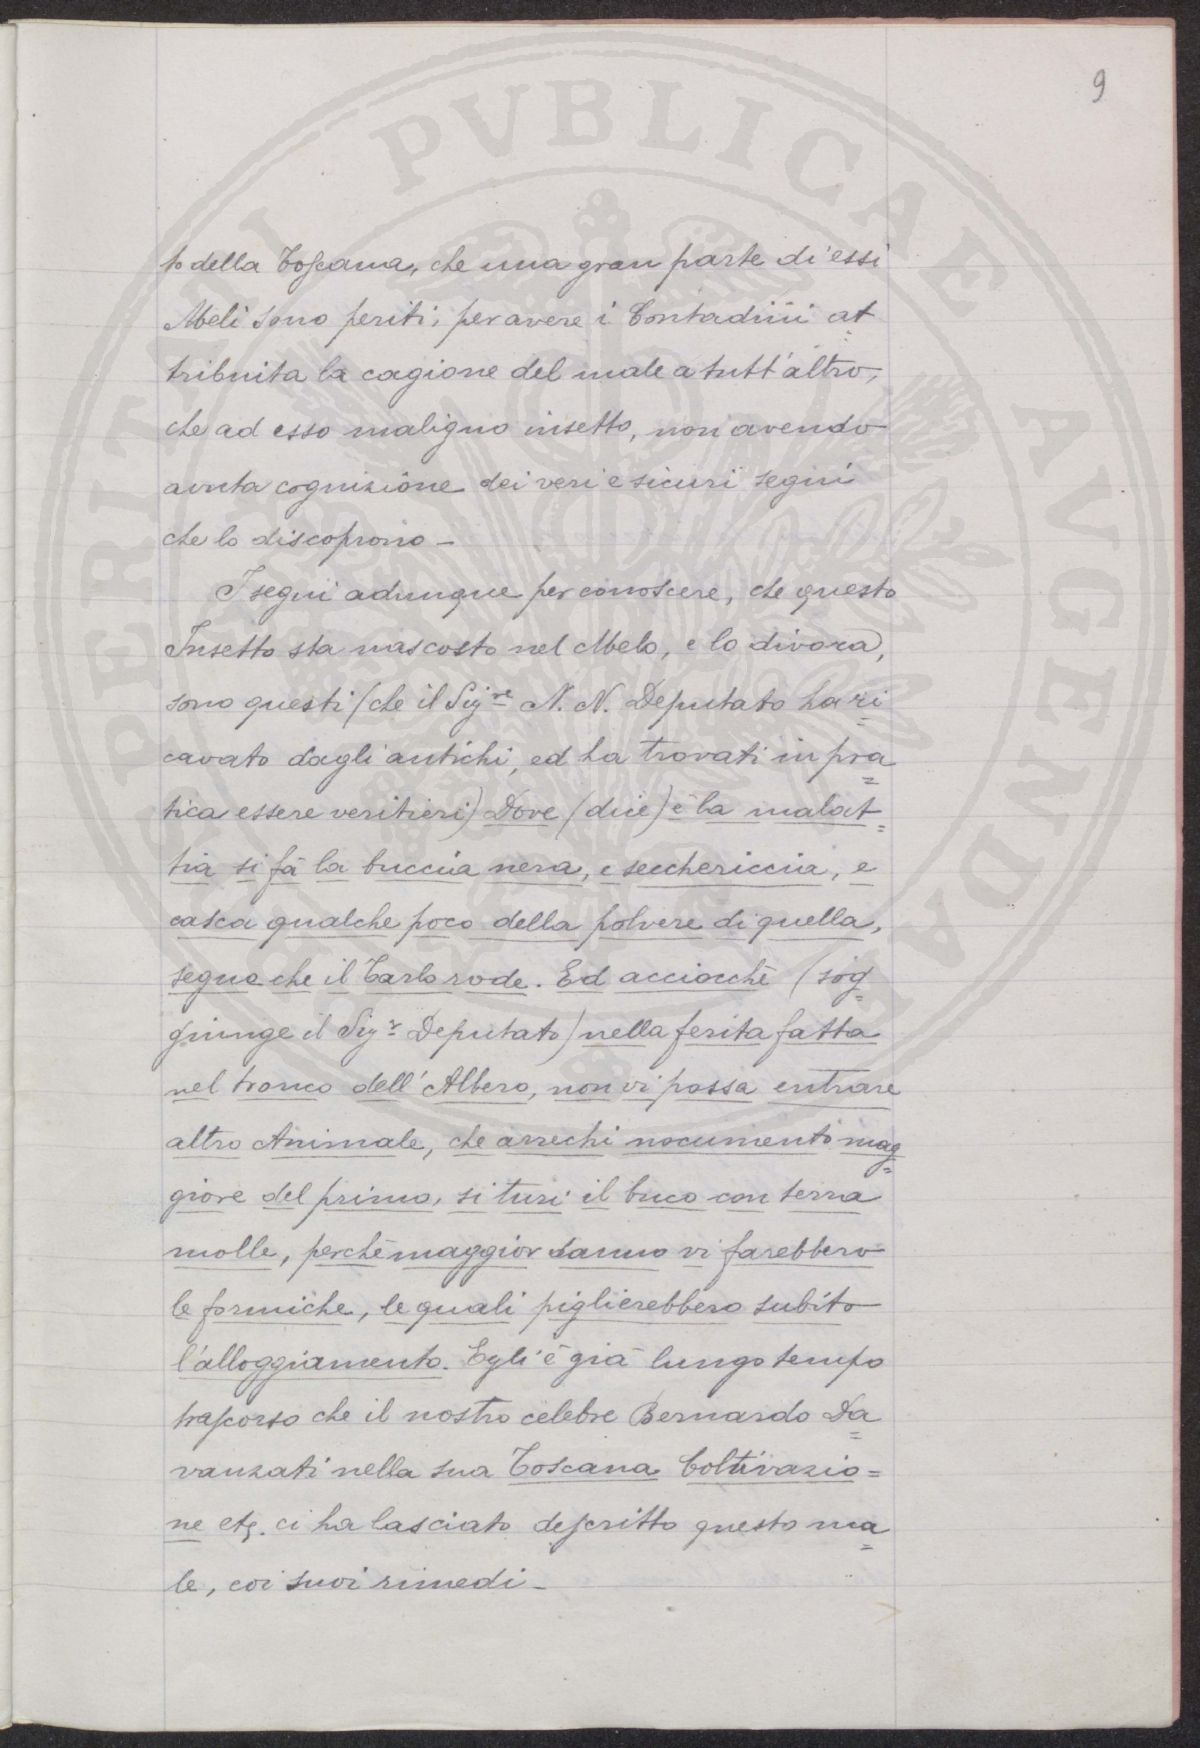 9
to della Toscana, che una gran parte di essi
Meli sono periti, per avere i Contadini at
tribuita la cagione del male a tutt'altro,
che ad esso maligno insetto, non avendo
avuta cognizione dei veri e sicuri segni
che lo discoprono –
I segni adunque per conoscere, che questo
Insetto sta nascosto nel Melo, e lo divora,
sono questi (che il Sig.re N. N. Deputato ha ri
cavato dagli antichi, ed ha trovati in pra
tica essere veritieri) Dove (dice) è la malat
tia si fà la buccia nera, e secchericcia, e
casca qualche poco della polvere di quella,
segno che il Tarlo rode. Ed acciocchè (sog
giunge il Sig.r Deputato) nella ferita fatta
nel tronco dell'Albero, non vi possa entrare
altro Animale, che arrechi nocumento mag
giore del primo, si turi il buco con terra
molle, perchè maggior danno vi farebbero
le formiche, le quali piglierebbero subito
l'alloggiamento. Egli è già lungo tempo
trascorso che il nostro celebre Bernardo Da
vanzati nella sua Toscana Coltivazio=
ne etc. ci ha lasciato descritto questo ma
le, coi suoi rimedi –
PERITATI PVBLICAE AVGENDAE